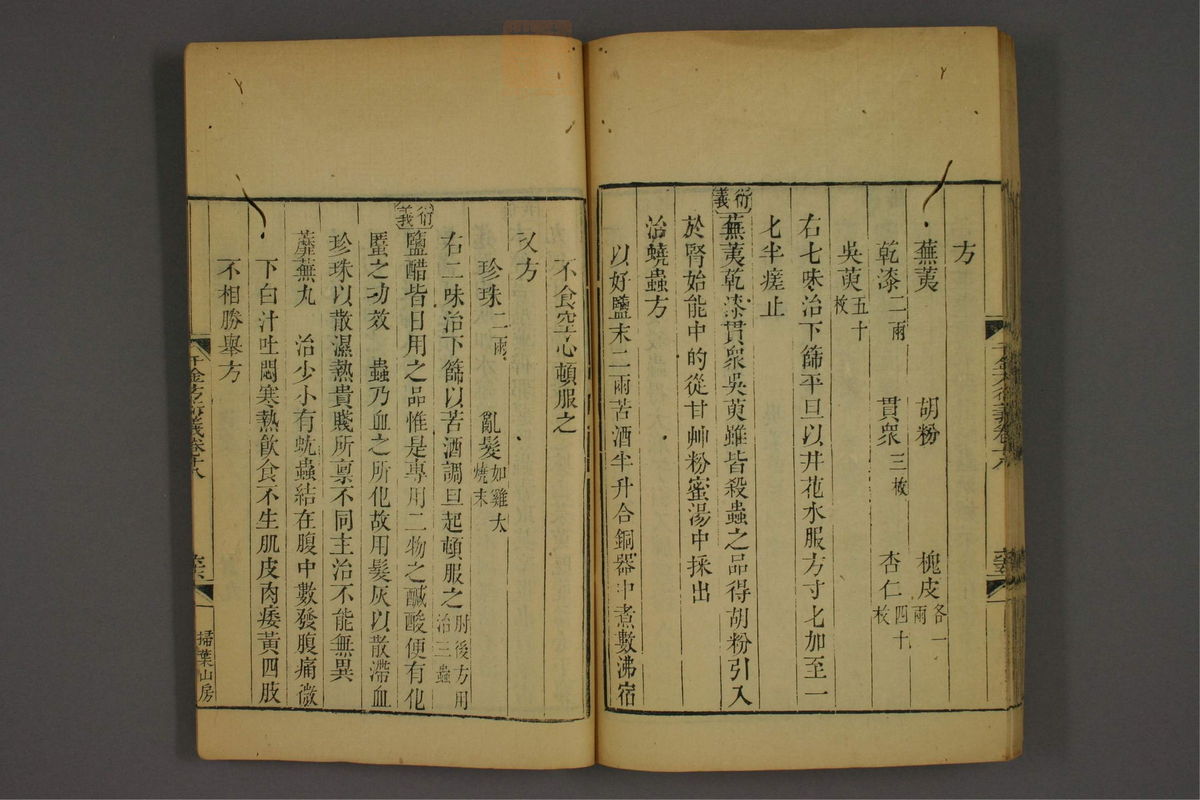 方
蕪荑 胡粉 槐皮各一兩
乾漆二兩 貫衆三枚 杏仁四十枚
吳萸五十枚
右七味治下篩平旦以井花水服方寸匕加至一
匕半瘥止
衍義 蕪荑乾漆貫衆吳萸雖皆殺蟲之品得胡粉引入
於腎始能中的從甘艸粉蜜湯中採出
治蟯蟲方
以好鹽末二兩苦酒半升合銅器中煮數沸宿
不食空心頓服之
又方
珍珠二兩 亂髮如雞大燒末
右二味治下篩以苦酒調旦起頓服之肘後方用治三蟲
衍義 鹽醋皆日用之品惟是專用二物之醎酸便有化
䘌之功效 蟲乃血之所化故用髮灰以散滯血
珍珠以散濕熱貴賤所禀不同主治不能無異
蘼蕪丸 治少小有蚘蟲結在腹中數發腹痛微
下白汁吐悶寒熱飲食不生肌皮肉痿黃四肢
不相勝舉方
千金方衍義卷十八
掃葉山房